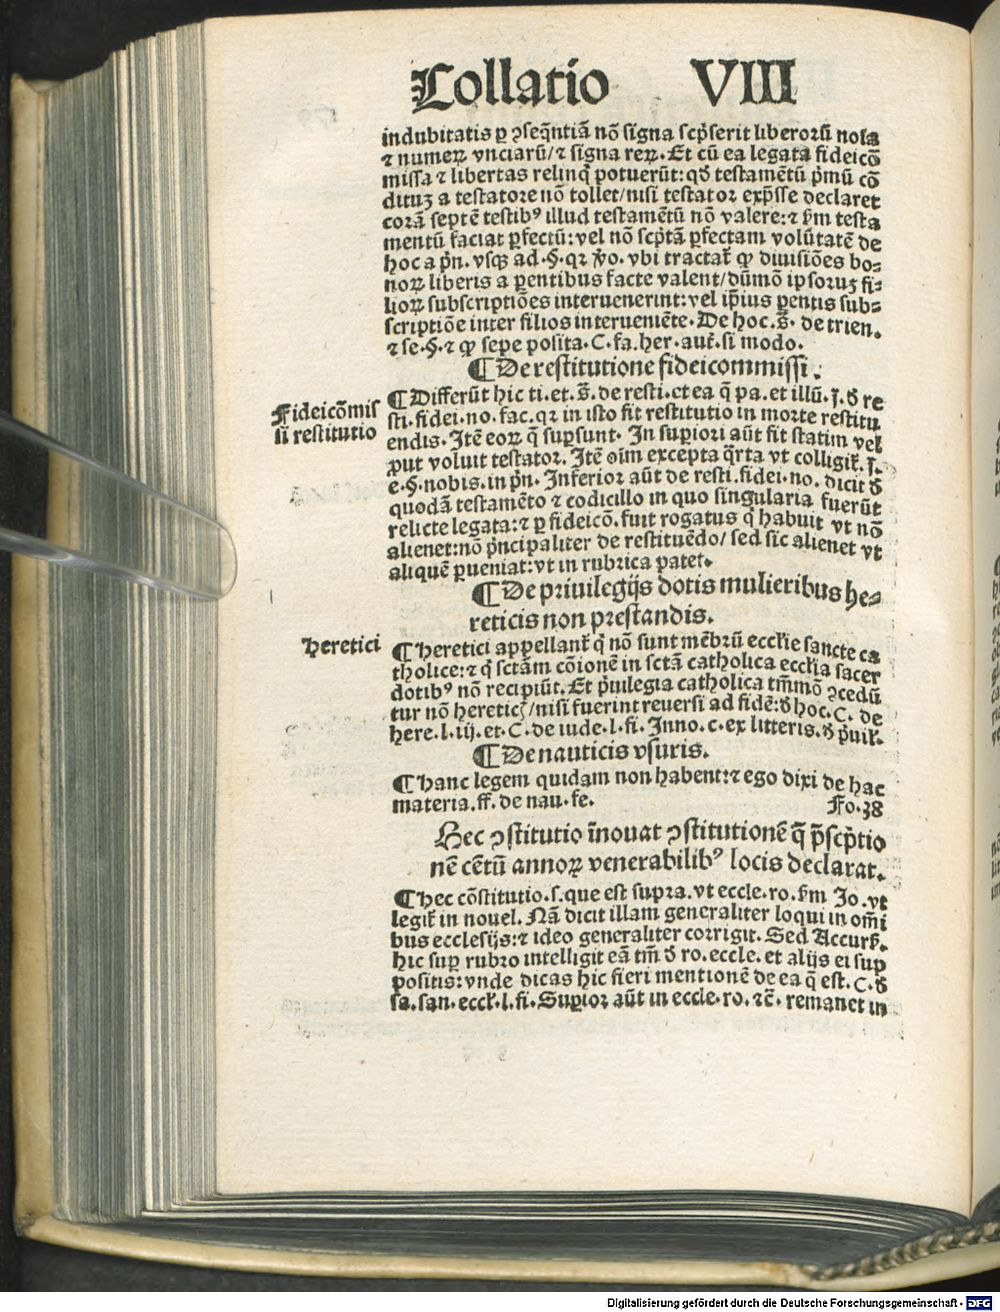 Collatio VIII
indubitatis ꝑ ꝯseq̄ntiā nō signa scp̄serit liberorū noīa
⁊ numeꝝ vnciarū/⁊ signa reꝝ. Et cū ea legata fideicō
missa ⁊ libertas relinq̄ potuerūt: qđ testamētū p̄mū cō
dituʒ a testatore nō tollet/nisi testator exp̄sse declaret
corā septē testibꝰ illud testamētū nō valere: ⁊ s̄m testa
mentū faciat ꝑfectū: vel nō scp̄tā ꝑfectam volūtatē de
hoc a pn̄. vsqꝫ ad .§. qꝛ ꝟo. vbi tractat̄ ꝙ diuisiōes bo-
noꝝ liberis a ꝑentibus facte valent/dūmō ipsoruʒ fi-
lioꝝ subscriptiōes interuenerint: vel ip̄ius ꝑentis sub-
scriptiōe inter filios interueniēte. De hoc .s̄. de trien.
⁊ se .§. ⁊ ꝙ sepe posita. C. fa. her. aut̄. si modo.
¶ De restitutione fideicommissi.
Fideicōmis
si restitutio
¶ Differūt hic ti. et .s̄. de resti. et ea q̄ pa. et illū. j. đ re
sti. fidei. no. fac. qꝛ in isto fit restitutio in morte restitu
endis. Itē eoꝝ q̄ suꝑsunt. In suꝑiori aūt fit statim vel
ꝓut voluit testator. Itē oīm excepta q̄rta vt colligit̄. j.
e. §. nobis. in pn̄. Inferior aūt de resti. fidei. no. dicit đ
quodā testamēto ⁊ codicillo in quo singularia fuerūt
relicte legata: ⁊ ꝑ fideicō. fuit rogatus q̄ habuit vt nō
alienet: nō p̄ncipaliter de restituēdo/ sed sic alienet vt
aliquē ꝑueniat: vt in rubrica patet.
¶ De priuilegijs dotis mulieribus he-
reticis non prestandis.
Heretici
¶ Heretici appellant̄ q̄ nō sunt mēbrū eccl̄ie sancte ca
tholice: ⁊ q̄ sctām cōionē in sctā catholica eccl̄ia sacer
dotibꝰ nō recipiūt. Et p̄uilegia catholica tm̄mō ꝯcedū
tur nō heretic̄/nisi fuerint reuersi ad fidē: đ hoc. C. de
here. l. iij. et. C. de iude. l. fi. Inno. c. ex litteris. đ p̄uil̄.
¶ De nauticis vsuris.
¶ Hanc legem quidam non habent: ⁊ ego dixi de hac
materia. ff. de nau. fe. Fo. 38
Hec ꝯstitutio īnouat ꝯstitutionē q̄ p̄scp̄tio
nē cētū annoꝝ venerabilibꝰ locis declarat.
¶ Hec cōstitutio. s. que est supra. vt eccle. ro. s̄m Jo. vt
legit̄ in nouel. Nā dicit illam generaliter loqui in om̄i
bus ecclesijs: ⁊ ideo generaliter corrigit. Sed Accurs̄.
hic suꝑ rubro intelligit eā tm̄ đ ro. eccle. et alijs ei sup
positis: vnde dicas hic fieri mentionē de ea q̄ est. C. đ
sa. san. eccl̄. l. fi. Suꝑior aūt in eccle. ro. ⁊ē. remanet in
Digitalisierung gefördert durch die Deutsche Forschungsgemeinschaft - DFG